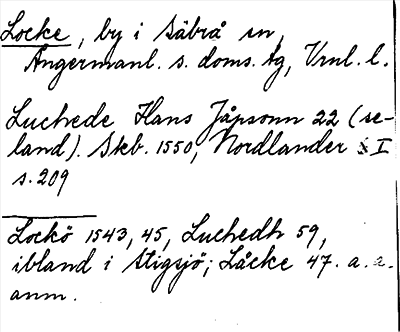 Locke, by i Säbrå sn,
Ångermanl. s. doms. tg, Vrnl. l.
Luchede Hans Jåpsonn 22 (se-
land). Skb. 1550, Nordlander I
s. 209
Lockö 1543, 45, Luchedh 59,
ibland i Stigsjö; Låcke 47. a. a.
anm.